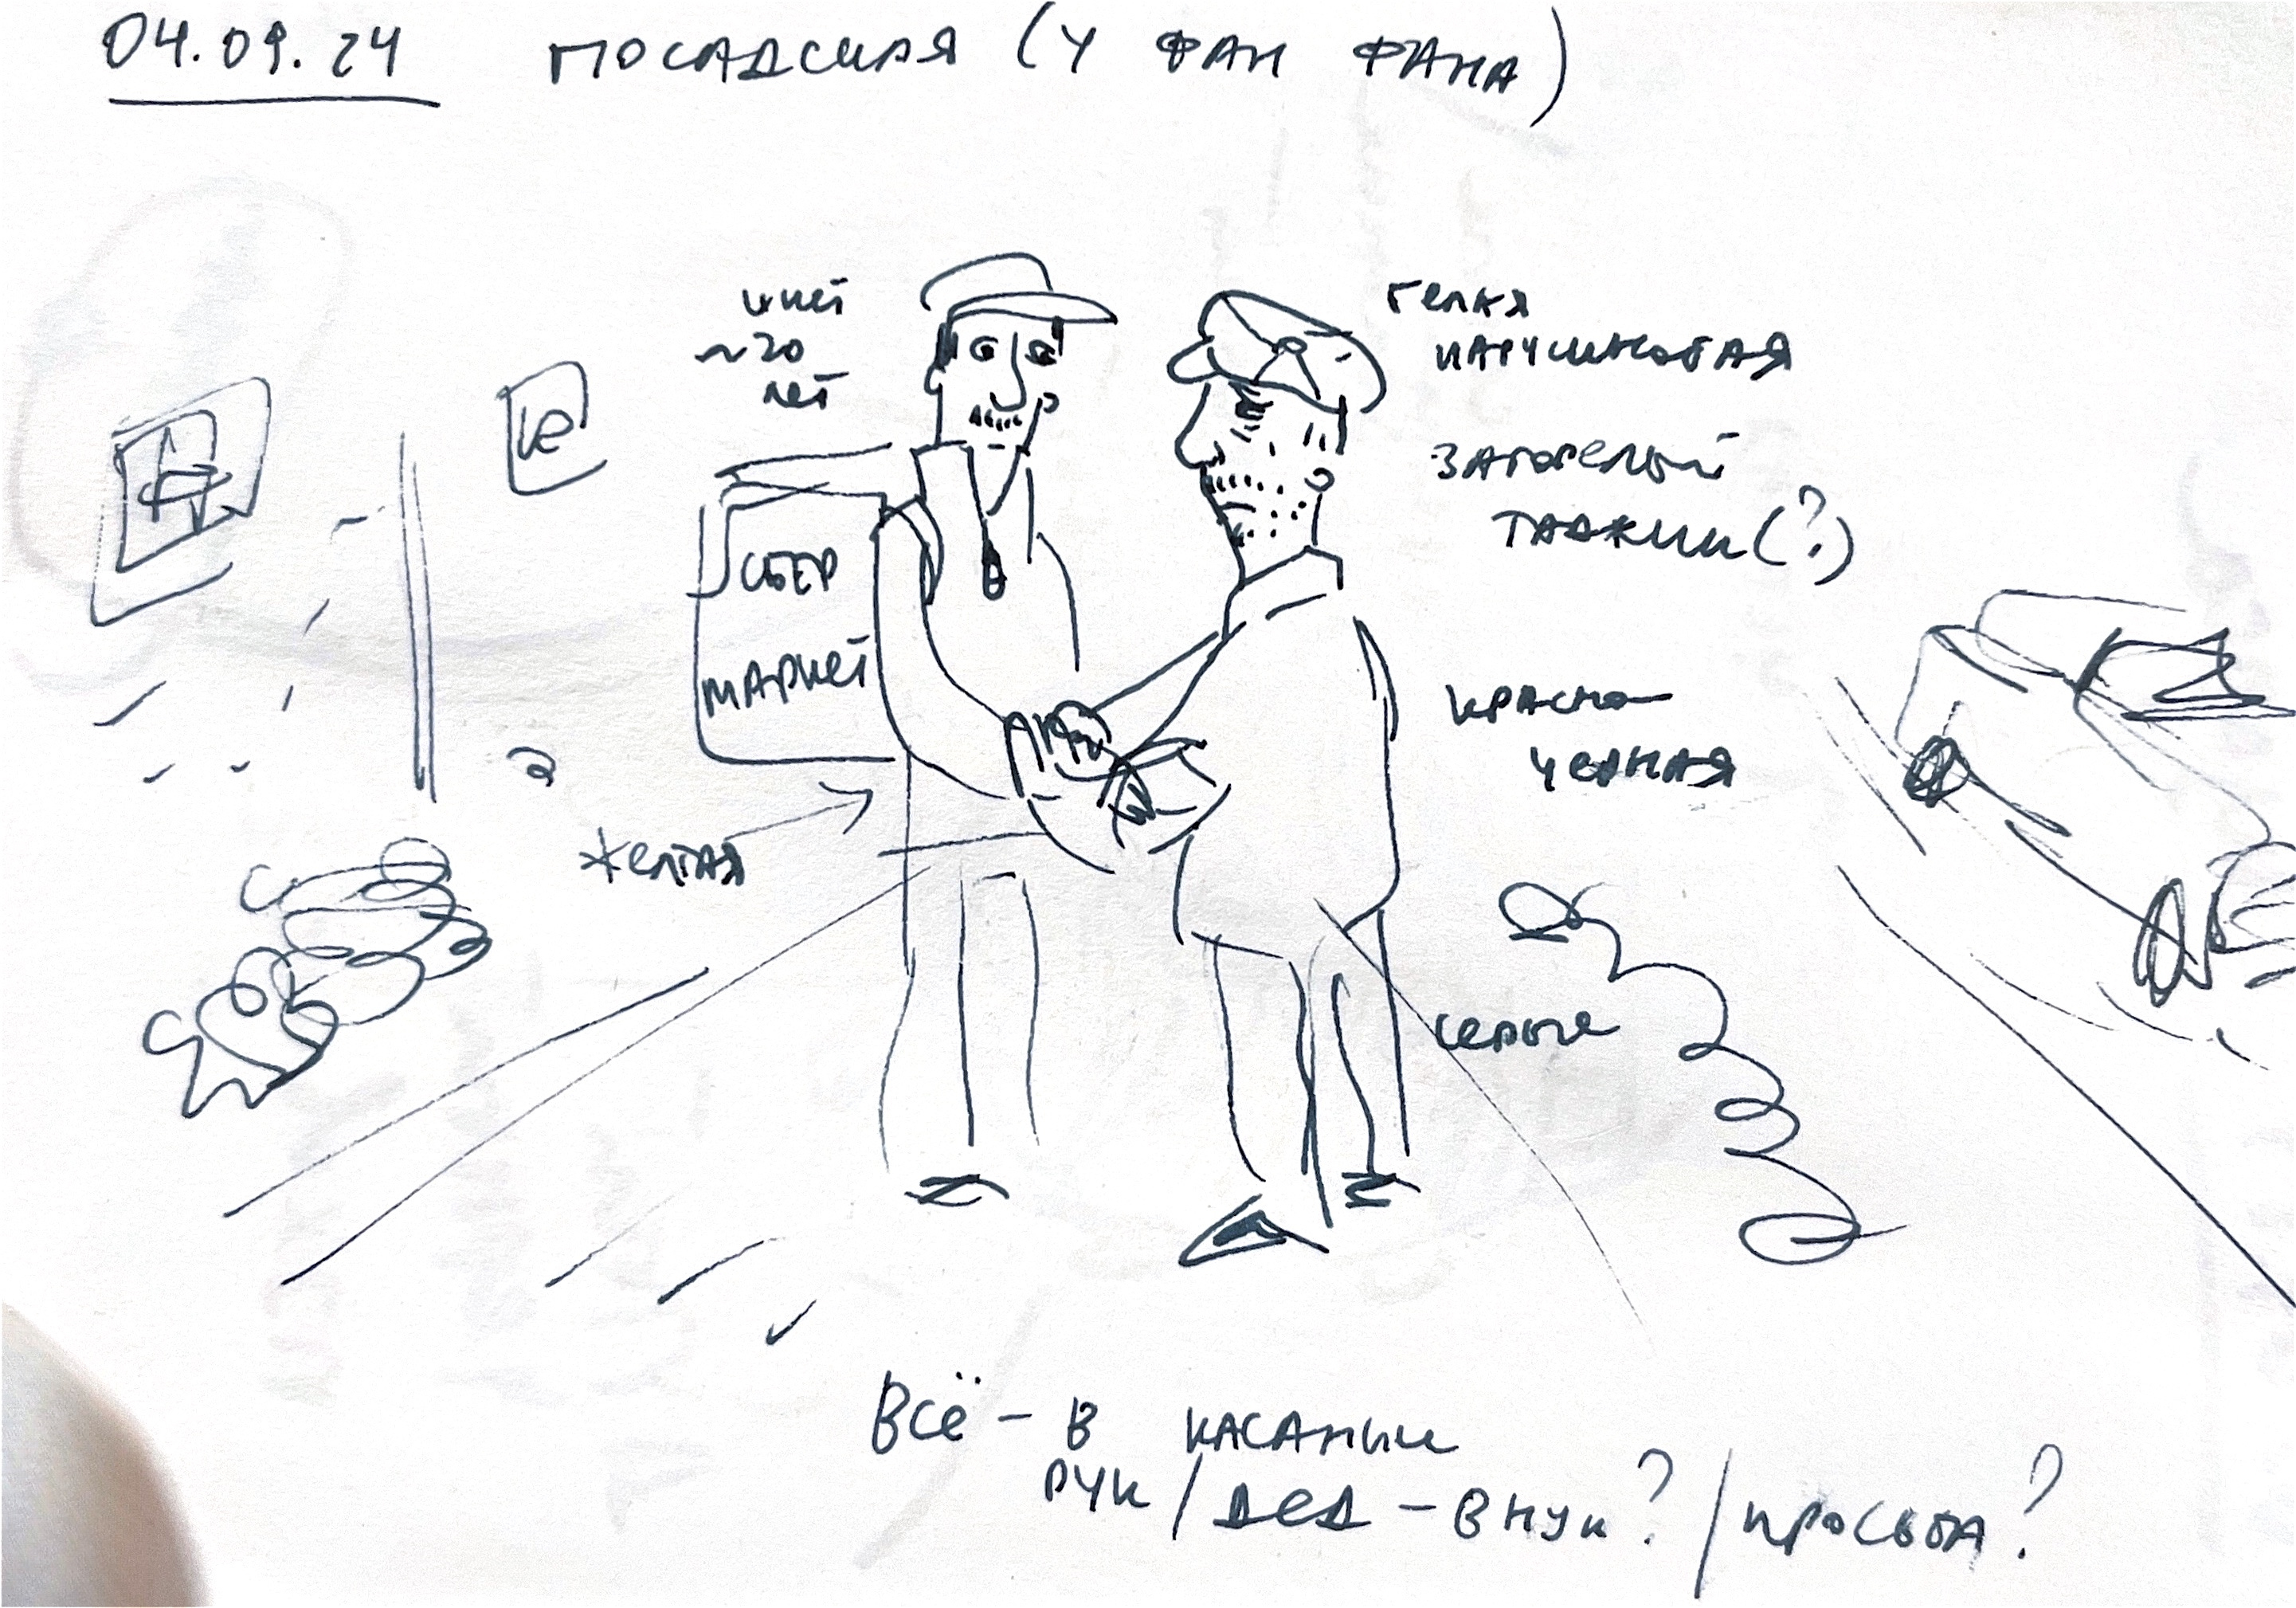 04.09.24 ПОСАДСКАЯ (У ФАН ФАНА)
~20
лет
СБЕР
МАРКЕТ
желтая
кепка
загорелый
таджик (?)
красно-
черная
серые
Всё - в касании
рук / дед - внук? / просьба?